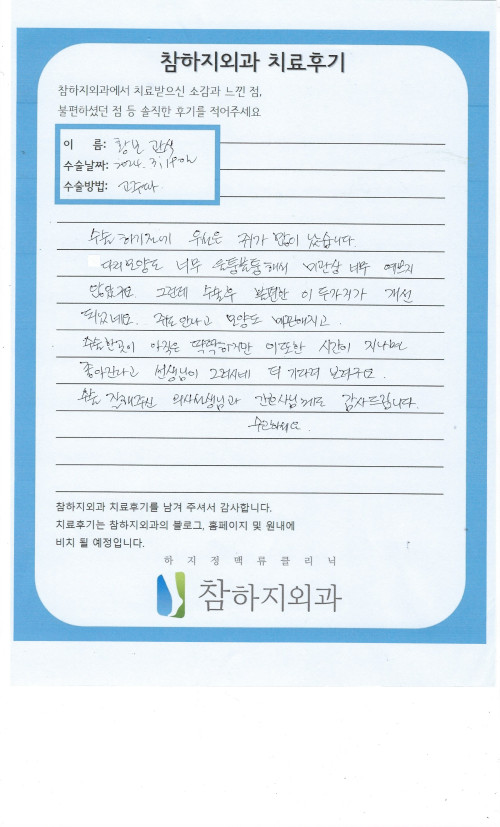 참하지외과 치료후기
참하지외과에서 치료받으신 소감과 느낀 점,
불편하셨던 점 등 솔직한 후기를 적어주세요
이 름: 황보 관식
수술날짜: 2024. 3,
수술방법: 고주파
수술 하기전에 우선은 쥐가 많이 났습니다.
다리모양도 너무 울퉁불퉁해서 미관상 너무 예쁘지
않았구요. 그런데 수술후 불편한 이 두가지가 개선
되었네요. 쥐도 안나고 모양도 예뻐지고.
수술한곳이 아직은 딱딱하지만 이또한 시간이 지나면
좋아진다고 선생님이 그러시네 더 기다려 보려구요.
수술 잘해주신 의사선생님과 간호사님께도 감사드립니다.
수고하세요.
참하지외과 치료후기를 남겨 주셔서 감사합니다.
치료후기는 참하지외과의 블로그, 홈페이지 및 원내에
비치 될 예정입니다.
하지정맥류클리닉
참하지외과